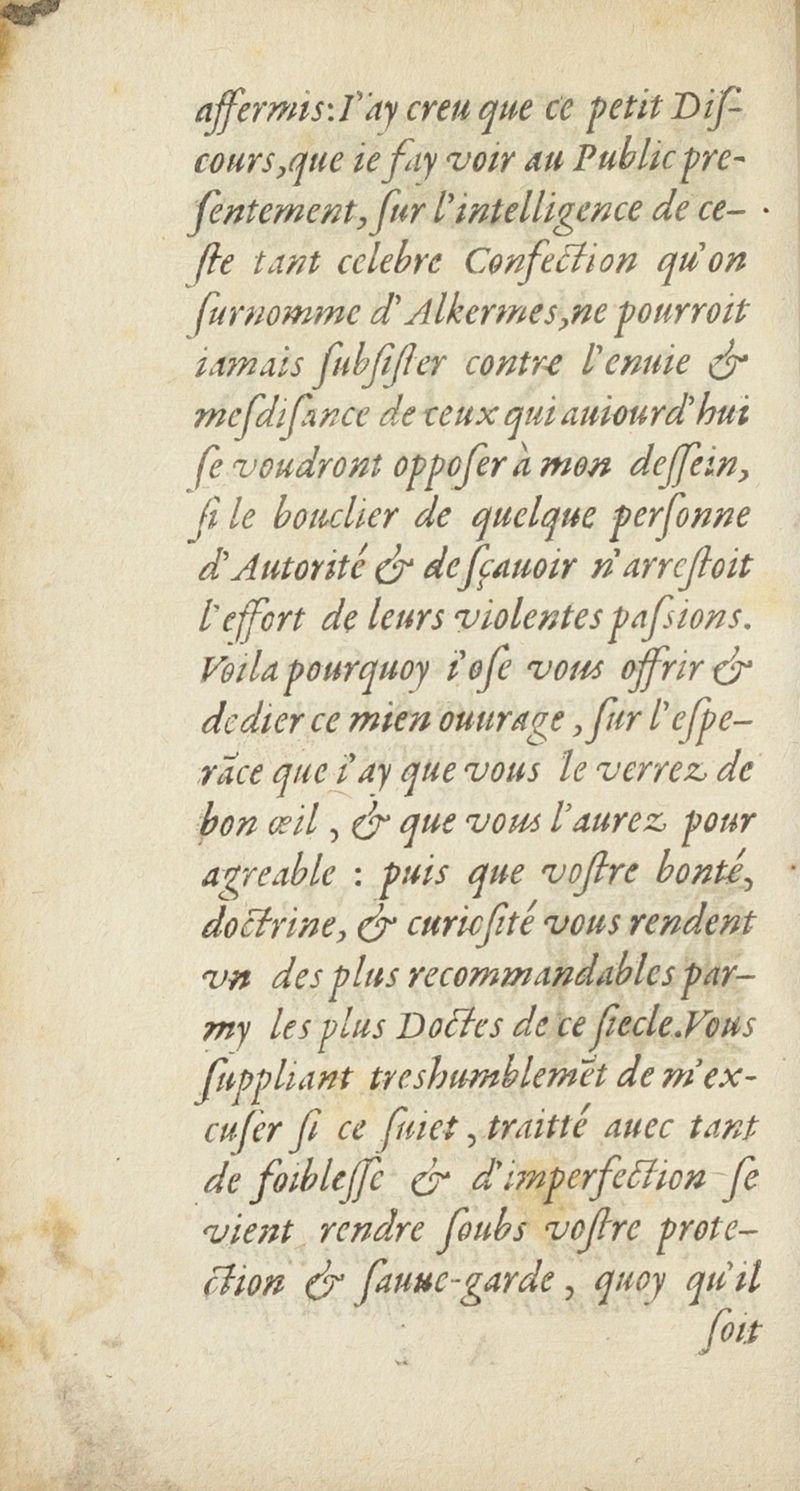 affermis: I'ay creu que ce petit Diſ-
cours, que ie fay voir au Public pre-
ſentement, ſur l'intelligence de ce-
ſte tant celebre Confection qu'on
ſurnomme d'Alkermes, ne pourroit
iamais ſubſiſter contre l'enuie &
meſdiſance de ceux qui auiourd'hui
ſe voudront oppoſer à mon deſſein,
ſi le bouclier de quelque perſonne
d'Autorité & de ſçauoir n'arreſtoit
l'effort de leurs violentes paſsions.
Voila pourquoy i'oſe vous offrir &
dedier ce mien ouurage, ſur l'eſpe-
rãce que i'ay que vous le verrez de
bon œil, & que vous l'aurez pour
agreable : puis que voſtre bonté,
doctrine, & curioſité vous rendent
vn des plus recommandables par-
my les plus Doctes de ce ſiecle. Vous
ſuppliant treshumblemẽt de m'ex-
cuſer ſi ce ſuiet, traitté auec tant
de foibleſſe & d'imperfection ſe
vient rendre ſoubs voſtre prote-
ction & ſauue-garde, quoy qu'il
ſoit